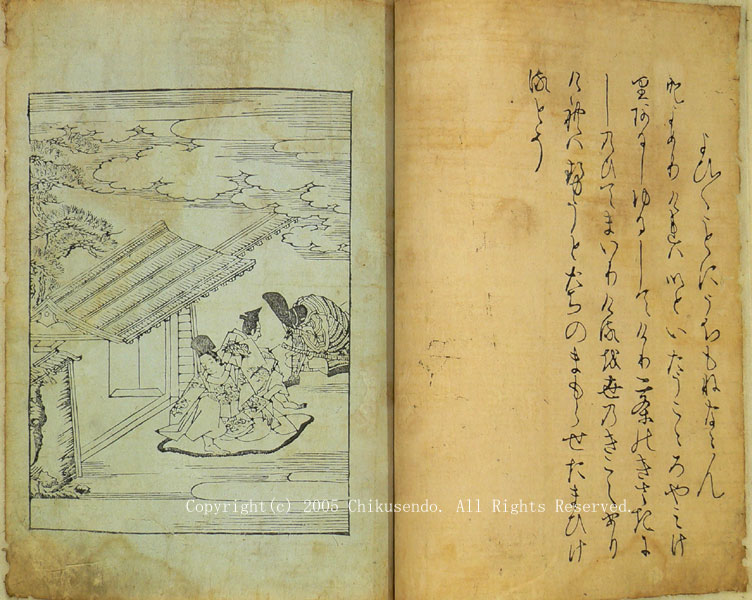 よひ〱ことにうちもねなゝん
とよめりけれはいといたうこゝろやみけ
りあるしゆるしてけり二条のきさきに
しのひてまいりけるを世のきこえあり
けれはせうとたちのまもらせたまひけ
るとそ
Copyright(c) 2005 Chikusendo. All Rights Reserved.